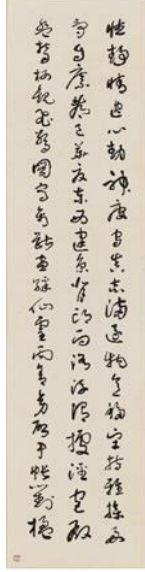 性靜情逸心動神疲守真志滿逐物意移堅持雅操好
爵自縻都邑華夏東西二京背邙面洛浮渭據涇宮殿
盤鬱樓觀飛驚圖寫禽獸畫綵仙靈丙舍傍啟甲帳對楹